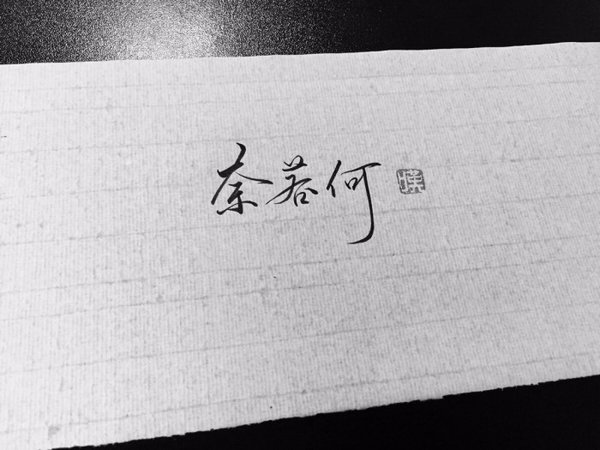 奈若何